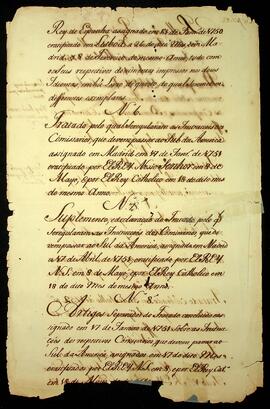 Rey de Espanha assignado em 13 de Janr.º de 1750
eratificado em Lisboa a 26 do dito Mes, e em Ma-
drid a 8 de Fevereiro do mesmo Anno, todo com
os seus respectivos
differentes exemplares.
N.º 6.
Tratado pelo qual se regularão as Instrucçoens dos
Comissarios que devem passar ao Sul da America
assignado em Madrid em 17 de Janr.º de 1751
eratificado por ELREY Nosso Senhor em 8 de
Mayo, e por ElRey Catholico em 18 do dito mes
do mesmo Anno.
N.º 7.
Suplemento, e declaração do Tratado, pelo q̃
se regularão as Instrucçoens dos Comissarios, que de-
vem passar ao Sul da America, assignado em Madrid
a 17 de Abril de 1751, eratificado por ELREY
N. S. em 8 de Mayo, e por ElRey Catholico em
18 do dito mes do mesmo Anno.
N.º 8.
Artigos Separados do Tratado concluido eas-
signado em 17 de Janeiro de 1751 sobre as Instruc-
çoens dos respectivos Comissarios que devem passar ao
Sul da America, assignados em 17 do dito Mes
eratificados por ELREY N. S. em 8, e por ElRey Cat.
em 18 de Mayo